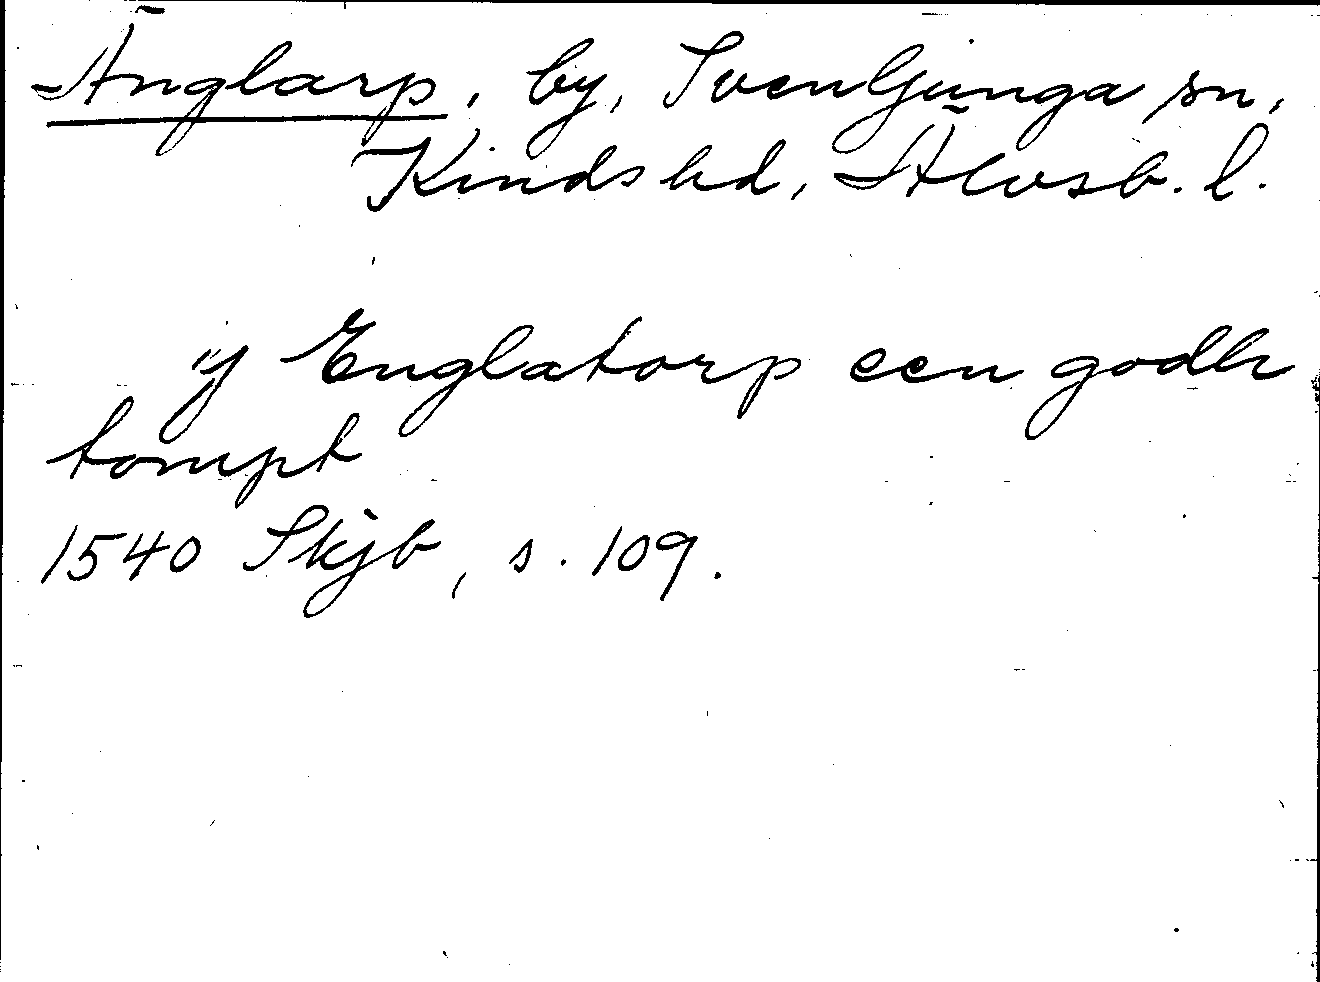 Änglarp, by, Svenljunga sn,
Kinds hd, Älvsb. l.
ij Englatorp een godh
tompt
1540 Skjb, s. 109.